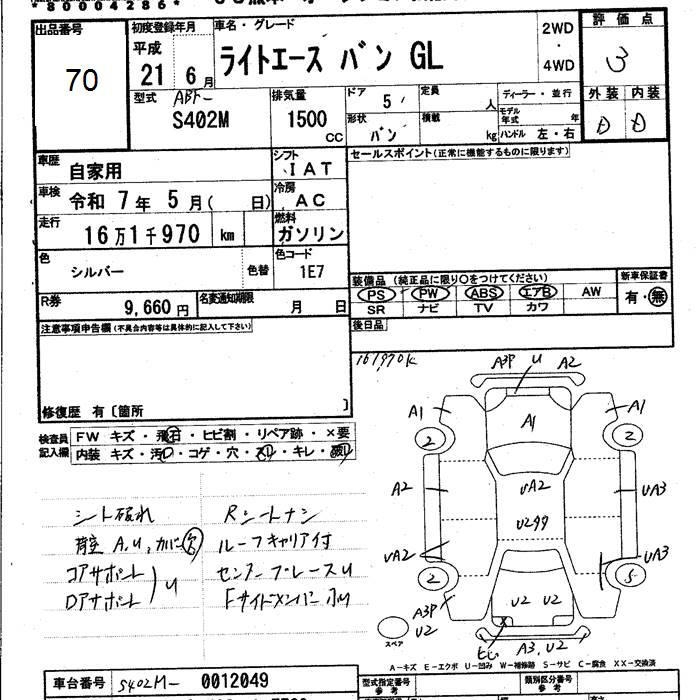 *80004286*
出品番号
70
初度登録年月
平成
21 6月
車名・グレード
ライトエース バン GL
2WD
・
4WD
評価点
3
外装 内装
D D
型式 ABF-
S402M
排気量
1500
CC
ドア
5
定員
人
形状
バン
積載
kg
ディーラー・並行
モデル年式
年
ハンドル 左・右
車歴
自家用
シフト
IAT
セールスポイント(正常に機能するものに限ります)
車検
令和 7年 5月( 日)
冷房
AC
走行
16万1千970 km
燃料
ガソリン
色
シルバー
色替
色コード
1E7
R券
9,660円
名変通知期限
月 日
装備品 (純正品に限り○をつけてください)
PS PW ABS エアB AW
SR ナビ TV カワ
新車保証書
有・無
後日品
注意事項申告欄(不具合内容等は具体的に記入して下さい)
修復歴 有〔箇所 〕
161970K
検査員
記入欄
FW キズ・飛石・ヒビ割・リペア跡・×要
内装 キズ・汚れ・コゲ・穴・スリ・キレ・破れ
シート破れ
荷室 A,U,カバー欠
コアサポート
Dアサポート
U
Rシートナシ
ルーフキャリア付
センターブレースU
FサイドメンバーU
A3P U A2
A1 A1 A1
2 2
A2 UA2 UA3
U2
UA2 UA3
2 5
A3P
U2
U2 U2
A3,U2
スペア
A-キズ E-エクボ U-凹み W-補修跡 S-サビ C-腐食 XX-交換済
車台番号
S402M- 0012049
型式指定番号
参考
類別区分番号
参考